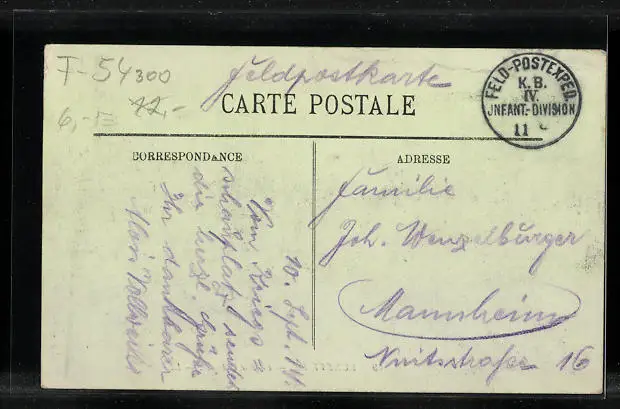 F-54300
12,-
6,-
Feldpostkarte
CARTE POSTALE
FELD-POSTEXPED.
K.B.
IV.
JNFANT.-DIVISION
11
CORRESPONDANCE
ADRESSE
10. Sept. 14.
Vom Kriegs=
schauplatz sendet
die herzl. Grüße
Ihr dankbarer
Familie
Joh. Wenzelburger
Mannheim
16